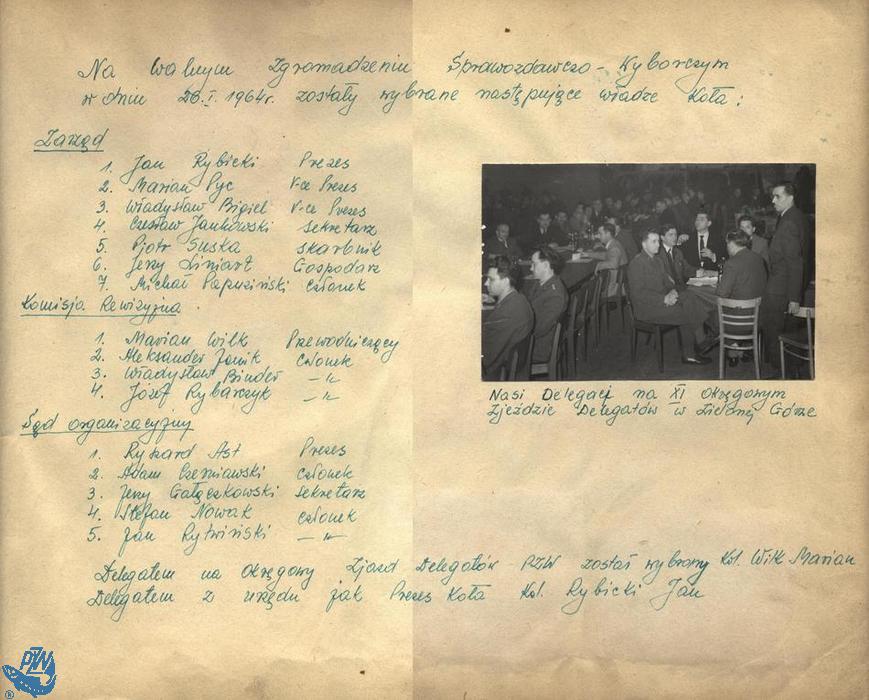 Na Walnym Zgromadzeniu Sprawozdawczo-Wyborczym
w dniu 26.I.1964r. zostały wybrane następujące władze Koła:
Zarząd
1. Jan Rybicki Prezes
2. Marian Pyc V-ce Prezes
3. Władysław Bigiel V-ce Prezes
4. Czesław Jankowski sekretarz
5. Piotr Suska skarbnik
6. Jerzy Liniart Gospodarz
7. Michał Papuziński członek
Komisja Rewizyjna
1. Marian Wilk Przewodniczący
2. Aleksander Janik Członek
3. Władysław Binder -"-
4. Józef Rybarczyk -"-
Sąd organizacyjny
1. Ryszard Ast Prezes
2. Adam Czerniawski członek
3. Jerzy Gałęczkowski sekretarz
4. Stefan Nowak członek
5. Jan Rytwiński -"-
Nasi Delegaci na XI Okręgowym
Zjeździe Delegatów w Zielonej Górze
Delegatem na Okręgowy Zjazd Delegatów PZW został wybrany Kol. Wilk Marian
Delegatem z urzędu jak Prezes Koła Kol. Rybicki Jan
PZW
®